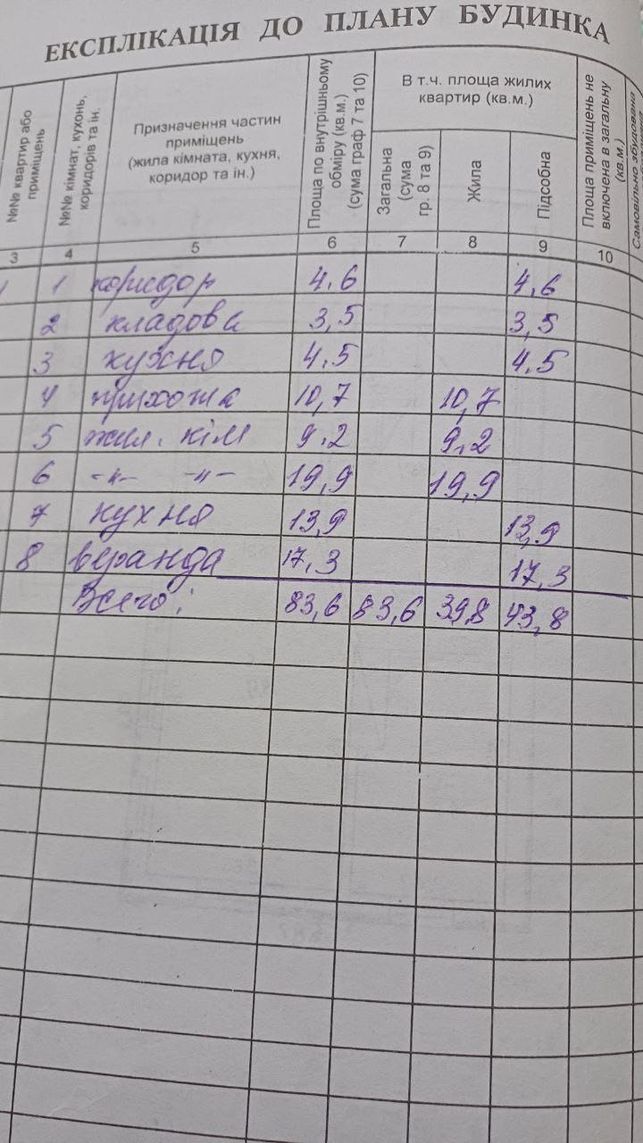 ЕКСПЛІКАЦІЯ ДО ПЛАНУ БУДИНКА
№№ квартир або приміщень
№№ кімнат, кухонь, коридорів та ін.
Призначення частин
приміщень
(жила кімната, кухня,
коридор та ін.)
Площа по внутрішньому
обміру (кв.м.)
(сума граф 7 та 10)
В т.ч. площа жилих
квартир (кв.м.)
Загальна
(сума
гр. 8 та 9)
Жила
Підсобна
Площа приміщень не
включена в загальну
(кв.м.)
3 4 5 6 7 8 9 10
1 1 коридор 4.6 4,6
2 кладова 3,5 3,5
3 кухня 4.5 4.5
4 прихожа 10,7 10,7
5 жил. кім 9.2 9,2
6 -"- -"- 19,9 19,9
7 кухня 13,9 13,9
8 веранда 17,3 17,3
Всего: 83,6 83,6 39,8 43,8